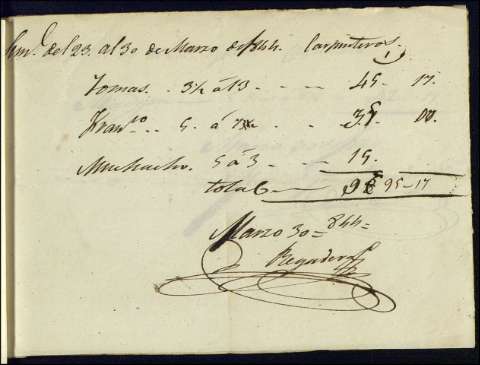 Semª. del 23 al 30 de Marzo de 844. Carpinteros.
Tomas. 3½ á 13 - - - 45 - 17.
Franco... 5. á - - 35 00.
Muchacho. 5 á 3 - - - 15.
total - - 95 - 17
Marzo 30 = 844 =
Regadera